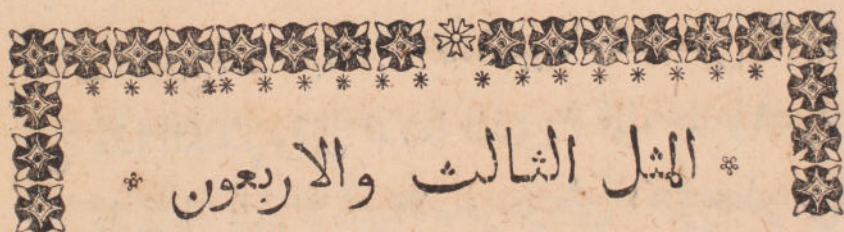 المثل الثالث والاربعون